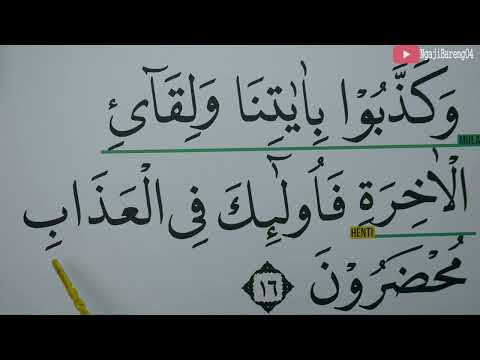 NgajiBareng04
وَكَذَّبُوْا بِاٰيٰتِنَا وَلِقَاۤئِ
الْاٰخِرَةِ فَاُولٰۤىِٕكَ فِى الْعَذَابِ
HENTI
مُحْضَرُوْنَ ١٦